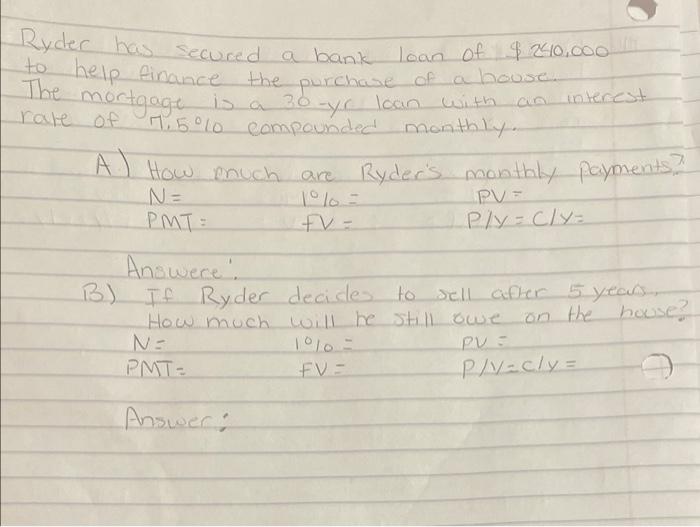 Ryder has secured a bank loan of $ 240,000
to help finance the purchase of a house.
The mortgage is a 30-yr loan with an interest
rate of 7.5% compounded monthly.
A) How much are Ryder's monthly payments?
N= I%= PV=
PMT= FV= P/Y=C/Y=
Answere:
B) If Ryder decides to sell after 5 years,
How much will he still owe on the house?
N= I%= PV=
PMT= FV= P/Y=C/Y=
Answer: